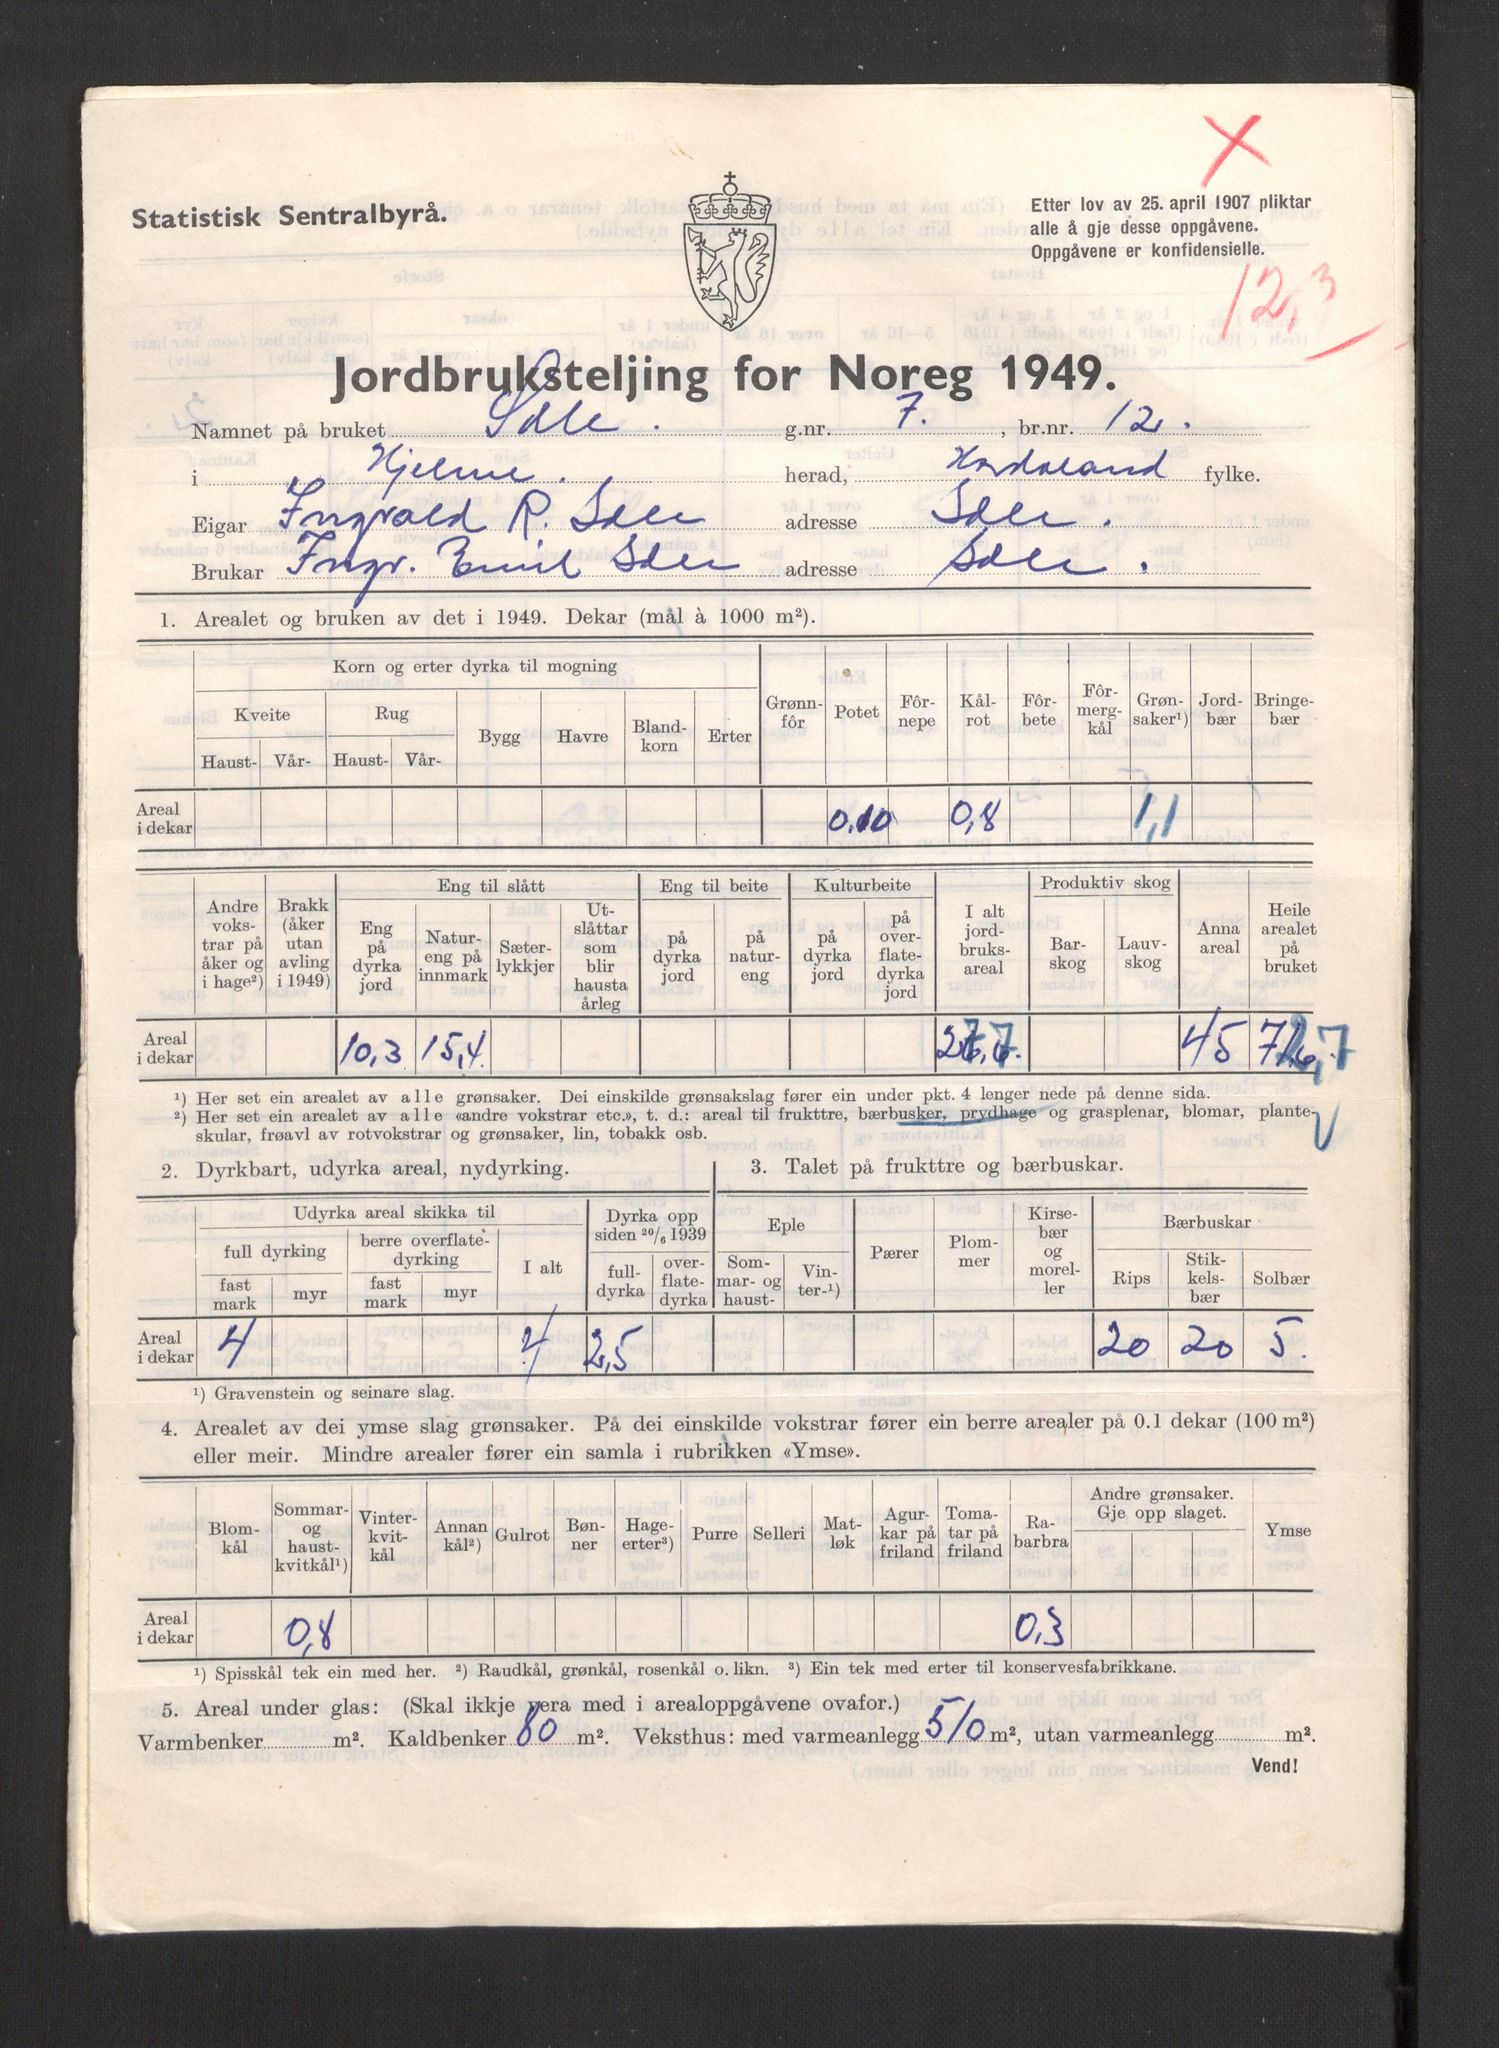 Statistisk Sentralbyrå.
Etter lov av 25. april 1907 pliktar
alle å gje desse oppgåvene.
Oppgåvene er konfidensielle.
12,3
Jordbruksteljing for Noreg 1949.
Namnet på bruket Sæle. g.nr. 7. , br.nr. 12.
i Hjelme. herad, Hordaland fylke.
Eigar Ingvald R. Sæle adresse Sæle.
Brukar Ingv. Emil Sæle adresse Sæle.
1. Arealet og bruken av det i 1949. Dekar (mål à 1000 m²).
Korn og erter dyrka til mogning
Kveite Rug Bygg Havre Bland-korn Erter Grønn-fôr Potet Fôr-nepe Kål-rot Fôr-bete Fôr-mergkål Grøn-saker¹) Jord-bær Bringe-bær
Haust- Vår- Haust- Vår-
Areal i dekar 0,10 0,8 1,1
Eng til slått Eng til beite Kulturbeite Produktiv skog
Andre voks-trar på åker og i hage²) Brakk (åker utan avling i 1949) Eng på dyrka jord Natur-eng på innmark Sæter-lykkjer Ut-slåttar som blir hausta årleg på dyrka jord på natur-eng på dyrka jord på over-flate-dyrka jord I alt jord-bruks-areal Bar-skog Lauv-skog Anna areal Heile arealet på bruket
Areal i dekar 10,3 15,4 27,7 45 72,7
¹) Her set ein arealet av alle grønsaker. Dei einskilde grønsakslag fører ein under pkt. 4 lenger nede på denne sida.
²) Her set ein arealet av alle «andre vokstrar etc.», t. d.: areal til frukttre, bærbusker, prydhage og grasplenar, blomar, plante-
skular, frøavl av rotvokstrar og grønsaker, lin, tobakk osb.
2. Dyrkbart, udyrka areal, nydyrking. 3. Talet på frukttre og bærbuskar.
Udyrka areal skikka til Dyrka opp siden 20/6 1939 Eple Pærer Plom-mer Kirse-bær og morel-ler Bærbuskar
full dyrking berre overflate-dyrking I alt full-dyrka over-flate-dyrka Som-mar- og haust- Vin-ter-¹) Rips Stik-kels-bær Solbær
fast mark myr fast mark myr
Areal i dekar 4 4 2,5 20 20 5.
¹) Gravenstein og seinare slag.
4. Arealet av dei ymse slag grønsaker. På dei einskilde vokstrar fører ein berre arealer på 0.1 dekar (100 m²)
eller meir. Mindre arealer fører ein samla i rubrikken «Ymse».
Blom-kål Sommar- og haust-kvitkål¹) Vinter-kvit-kål Annan kål²) Gulrot Bøn-ner Hage-erter³) Purre Selleri Mat-løk Agur-kar på friland Toma-tar på friland Ra-barbra Andre grønsaker. Gje opp slaget. Ymse
Areal i dekar 0,8 0,3
¹) Spisskål tek ein med her. ²) Raudkål, grønkål, rosenkål o. likn. ³) Ein tek med erter til konservesfabrikkane.
5. Areal under glas: (Skal ikkje vera med i arealoppgåvene ovafor.)
Varmbenker m². Kaldbenker 80 m². Veksthus: med varmeanlegg 510 m², utan varmeanlegg m².
Vend!